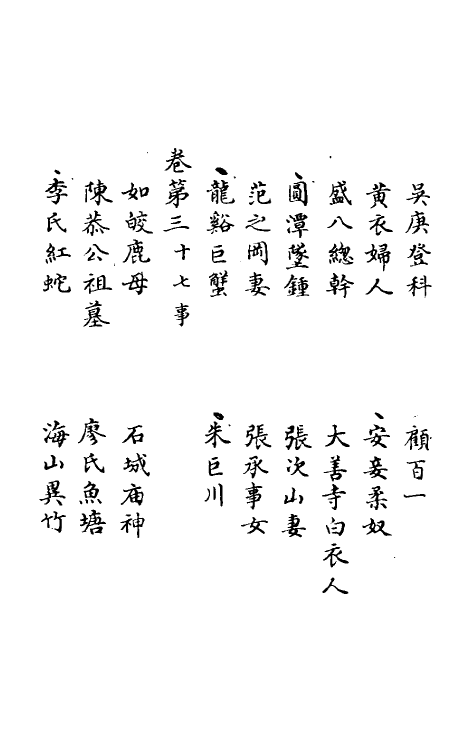 吳庚登科　顧百一
黃衣婦人　安妾柔奴
盛八總幹　大善寺白衣人
圓潭墜鍾　張次山妻
范之岡妻　張承事女
龍谿巨蟹　朱巨川
卷第三十七事
如皎鹿母　石城庙神
陳恭公祖墓　廖氏魚塘
季氏紅蛇　海山異竹